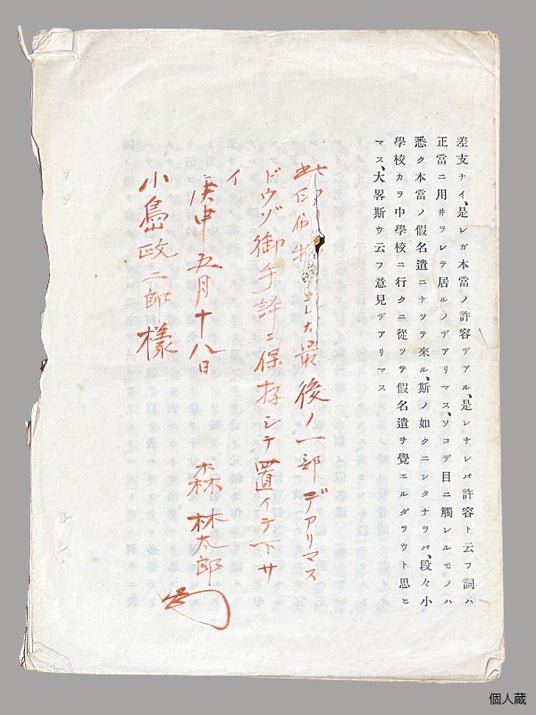 差支ナイ、是レガ本當ノ許容デアル、是レナレバ許容ト云フ詞ハ
正當ニ用井ラレテ居ルノデアリマス、ソコデ目ニ觸レルモノハ
悉ク本當ノ假名遣ニナツテ來ル、斯ノ如クニシタナラバ、段々小
學校カラ中學校ニ行クニ從ツテ假名遣ヲ覺エルダラウト思ヒ
マス、大畧斯ウ云フ意見デアリマス
最後ノ一部デアリマス
ドウゾ御手許ニ保存シテ置イテ下サ
イ
庚申五月十八日
森林太郎
小島政二郎樣
個人蔵